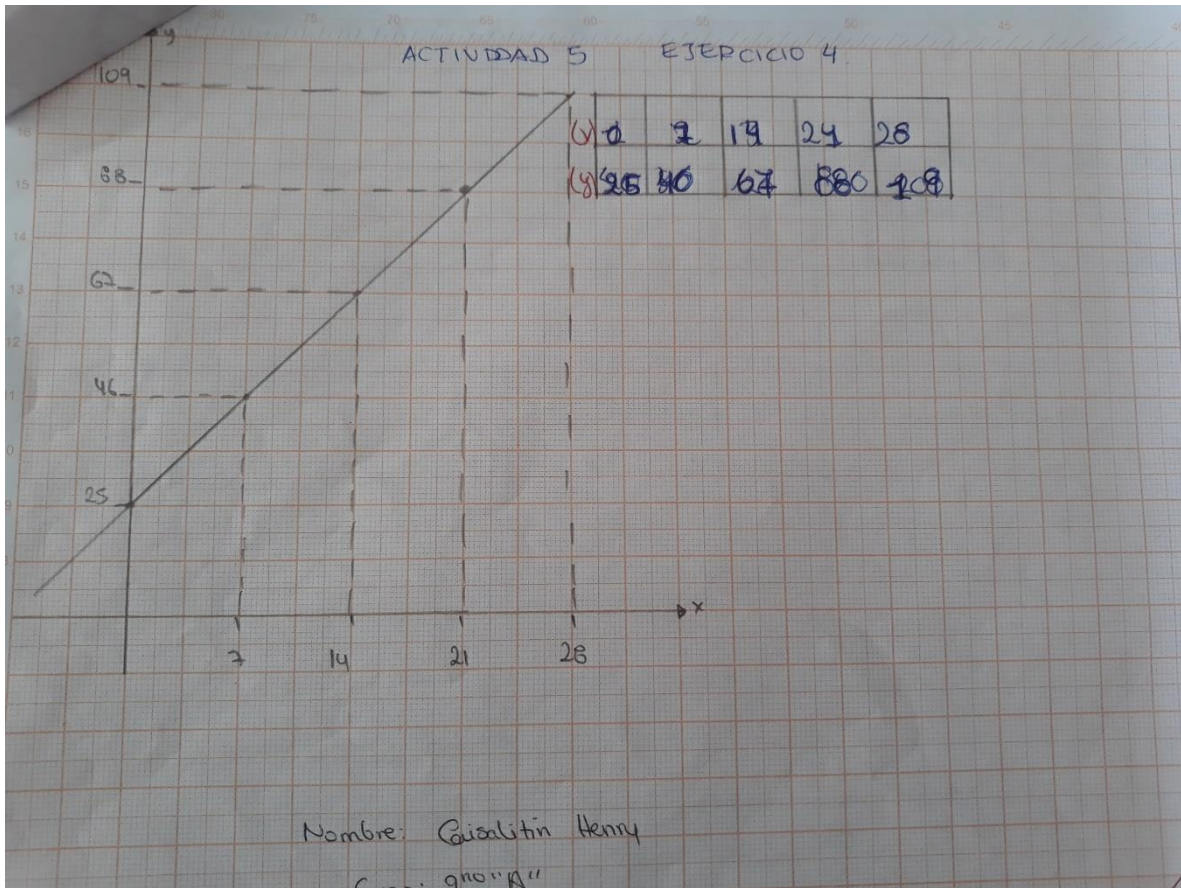 y
ACTIVIDAD 5 EJERCICIO 4
109
88
67
46
25
(x) 0 7 14 21 28
(y) 25 46 67 88 109
x
7 14 21 28
Nombre: Caisalitin Henry
9no "A"